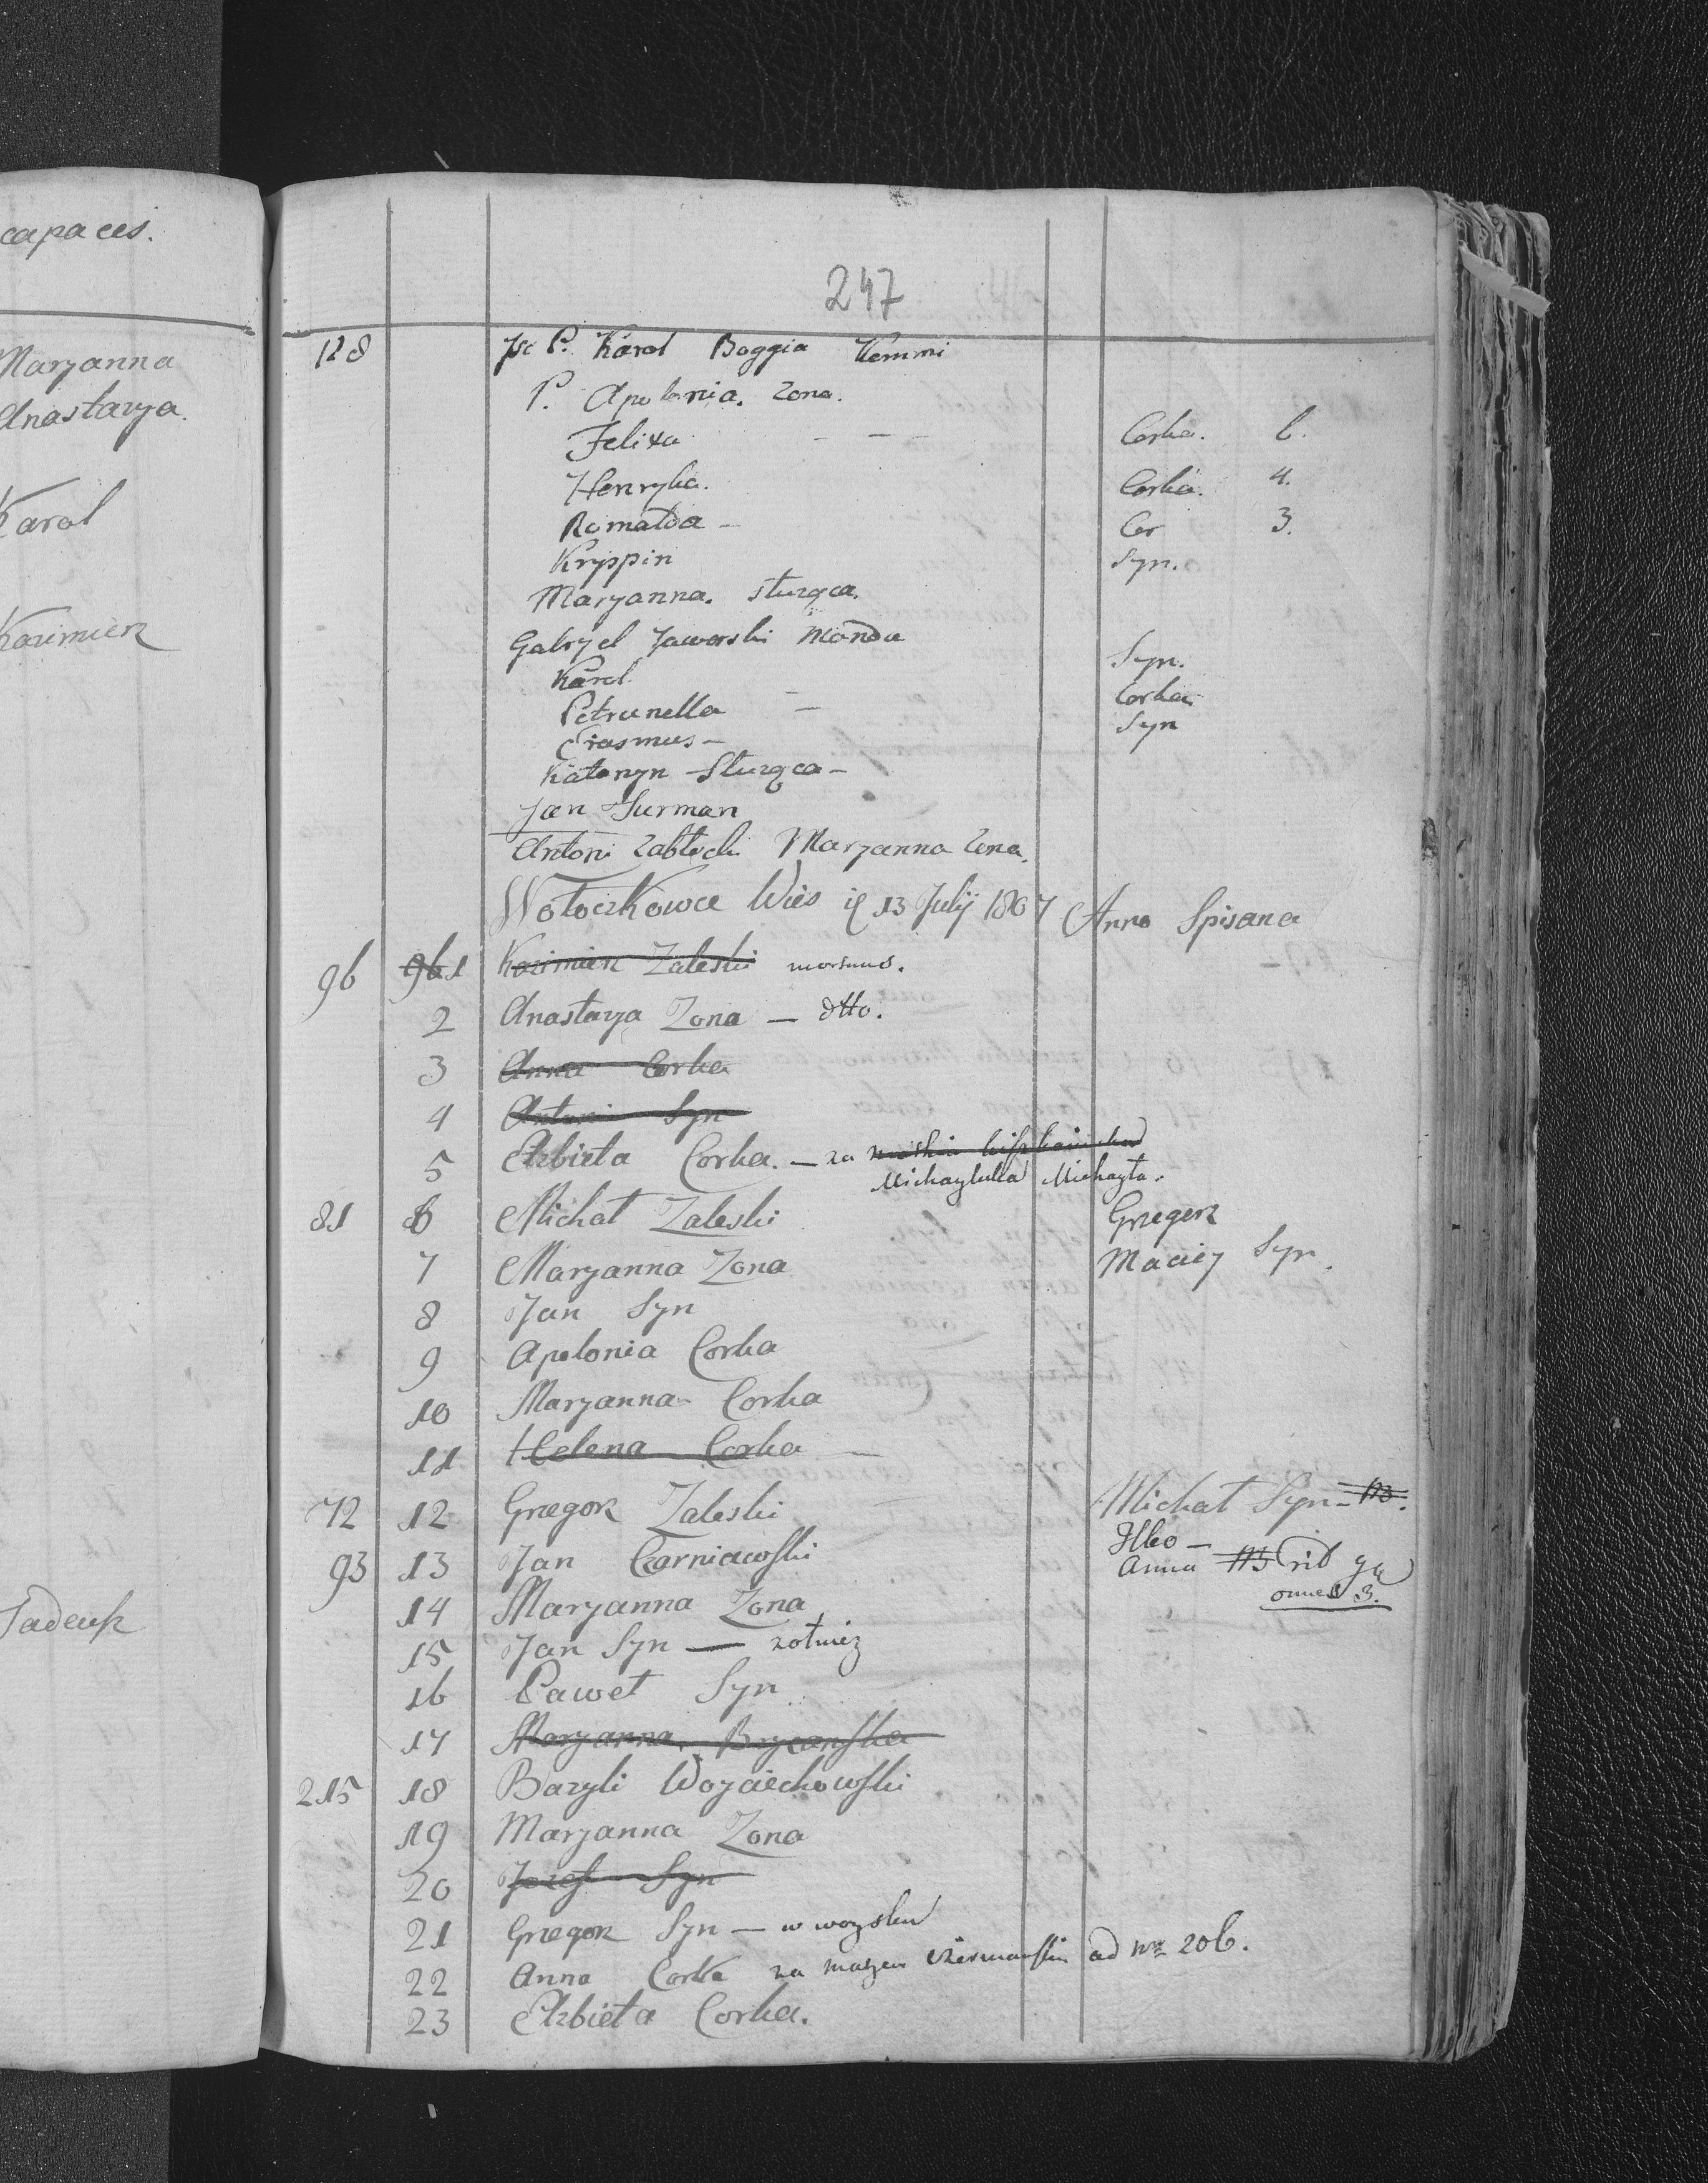 capaces.
Maryanna
Anastazya.
Karol
Kazimierz
Tadeusz
247
128 P. Karol Boggia Kemmi
P. Apolonia. Zona.
Felixa - - - Corka. 6.
Henryka. Corka. 4.
Romalda - Cor 3.
Kryspin Syn.
Maryanna. sluzqca.
Gabryel Jaworski
Karol. Syn.
Petrunella - Corka
Erasmus - Syn
Kataryn - Sluzqca -
Jan Furman
Antoni Zablocki Maryanna Zona.
Wołoczkowce Wies 13 Julij 1807 Anno Spisana
96 961 Kazimierz Zaleski mortuus.
2 Anastazya Zona — dtto.
3 Anna Corka
4 Antoni Syn
5 Elzbieta Corka. — za
Michayluka Michayła.
81 6 Michał Zaleski Grzegorz
7 Maryanna Zona Maciey Syn.
8 Jan Syn
9 Apolonia Corka
10 Maryanna Corka
11 Helena Corka
72 12 Grzegorz Zaleski Michał Syn -
Ilko -
93 13 Jan Czarniawski Anna
omnes 3.
14 Maryanna Zona
15 Jan Syn — zołnierz
16 Paweł Syn
17 Maryanna
215 18 Bazyli Woyciechowski
19 Maryanna Zona
20 Jozef Syn
21 Grzegorz Syn — w woysku
22 Anna Corka za mązem ad Nr 206.
23 Elzbieta Corka.